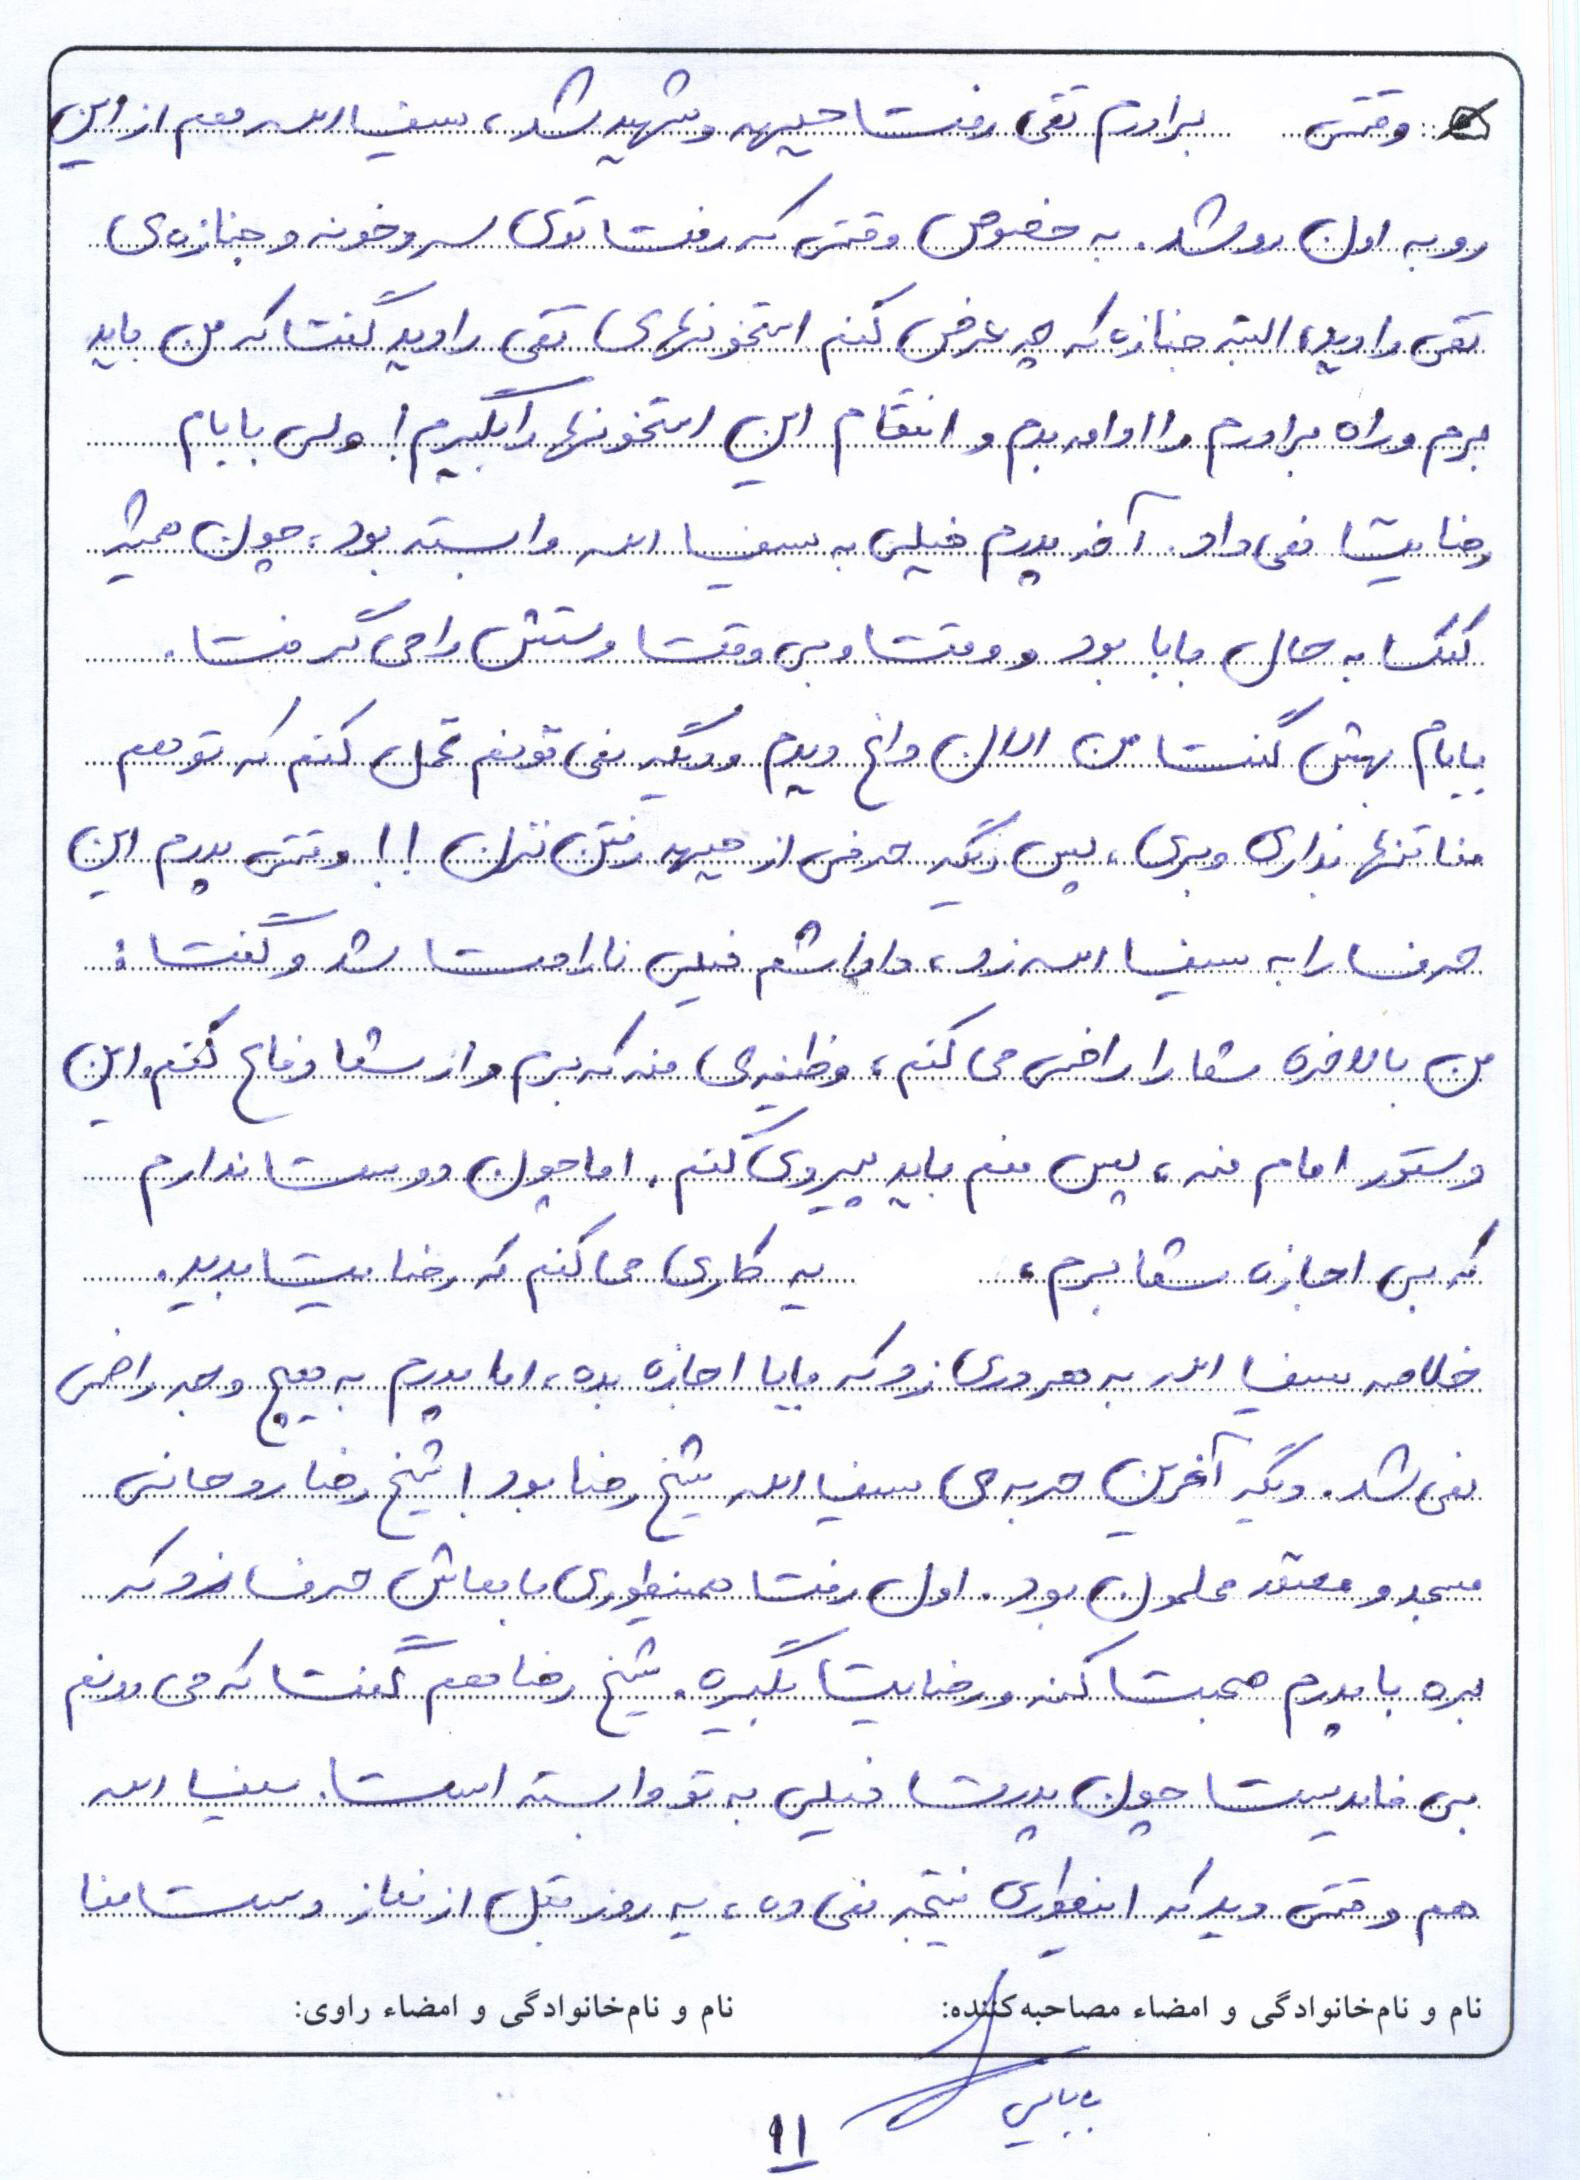 وقتی برادرم تقی رفت جبهه و شهید شد، سیف الله هم از این
رو به اون رو شد. به خصوص وقتی که رفت توی سردخونه و جنازه‌ی
تقی را دید، البته جنازه که چه عرض کنم استخونهای تقی را دید گفت که من باید
برم و راه برادرم را ادامه بدم و انتقام این استخونها را بگیرم! ولی بابام
رضایت نمی داد. آخه پدرم خیلی به سیف الله وابسته بود، چون همیشه
کمک به حال بابا بود و وقت و بی وقت دستش را می گرفت.
بابام بهش گفت من الان داغ دیدم و دیگه نمی تونم تحمل کنم که تو هم
منا تنها بذاری و بری، پس دیگه حرفی از جبهه رفتن نزن!! وقتی پدرم این
حرف را به سیف الله زد، داداشم خیلی ناراحت شد و گفت:
من بالاخره شما را راضی می کنم، وظیفه‌ی منه که برم و از شما دفاع کنم، این
دستور امام منه، پس منم باید پیروی کنم. اما چون دوست ندارم
که بی اجازه شما برم، یه کاری می کنم که رضایت بدید.
خلاصه سیف الله به هر دری زد که بابا اجازه بده، اما پدرم به هیچ وجه راضی
نمی شد. دیگه آخرین حربه ی سیف الله شیخ رضا بود! شیخ رضا روحانی
مسجد و معتمد محلمون بود. اول رفت همینطوری باهاش حرف زد که
بره با پدرم صحبت کنه و رضایت بگیره. شیخ رضا هم گفت که می دونم
بی فایدست چون پدرت خیلی به تو وابسته است. سیف الله
هم وقتی دید که اینطوری نتیجه نمی ده، یه روز قبل از نماز دست منا
نام و نام‌خانوادگی و امضاء مصاحبه‌کننده: نام و نام‌خانوادگی و امضاء راوی:
بابایی
۱۱